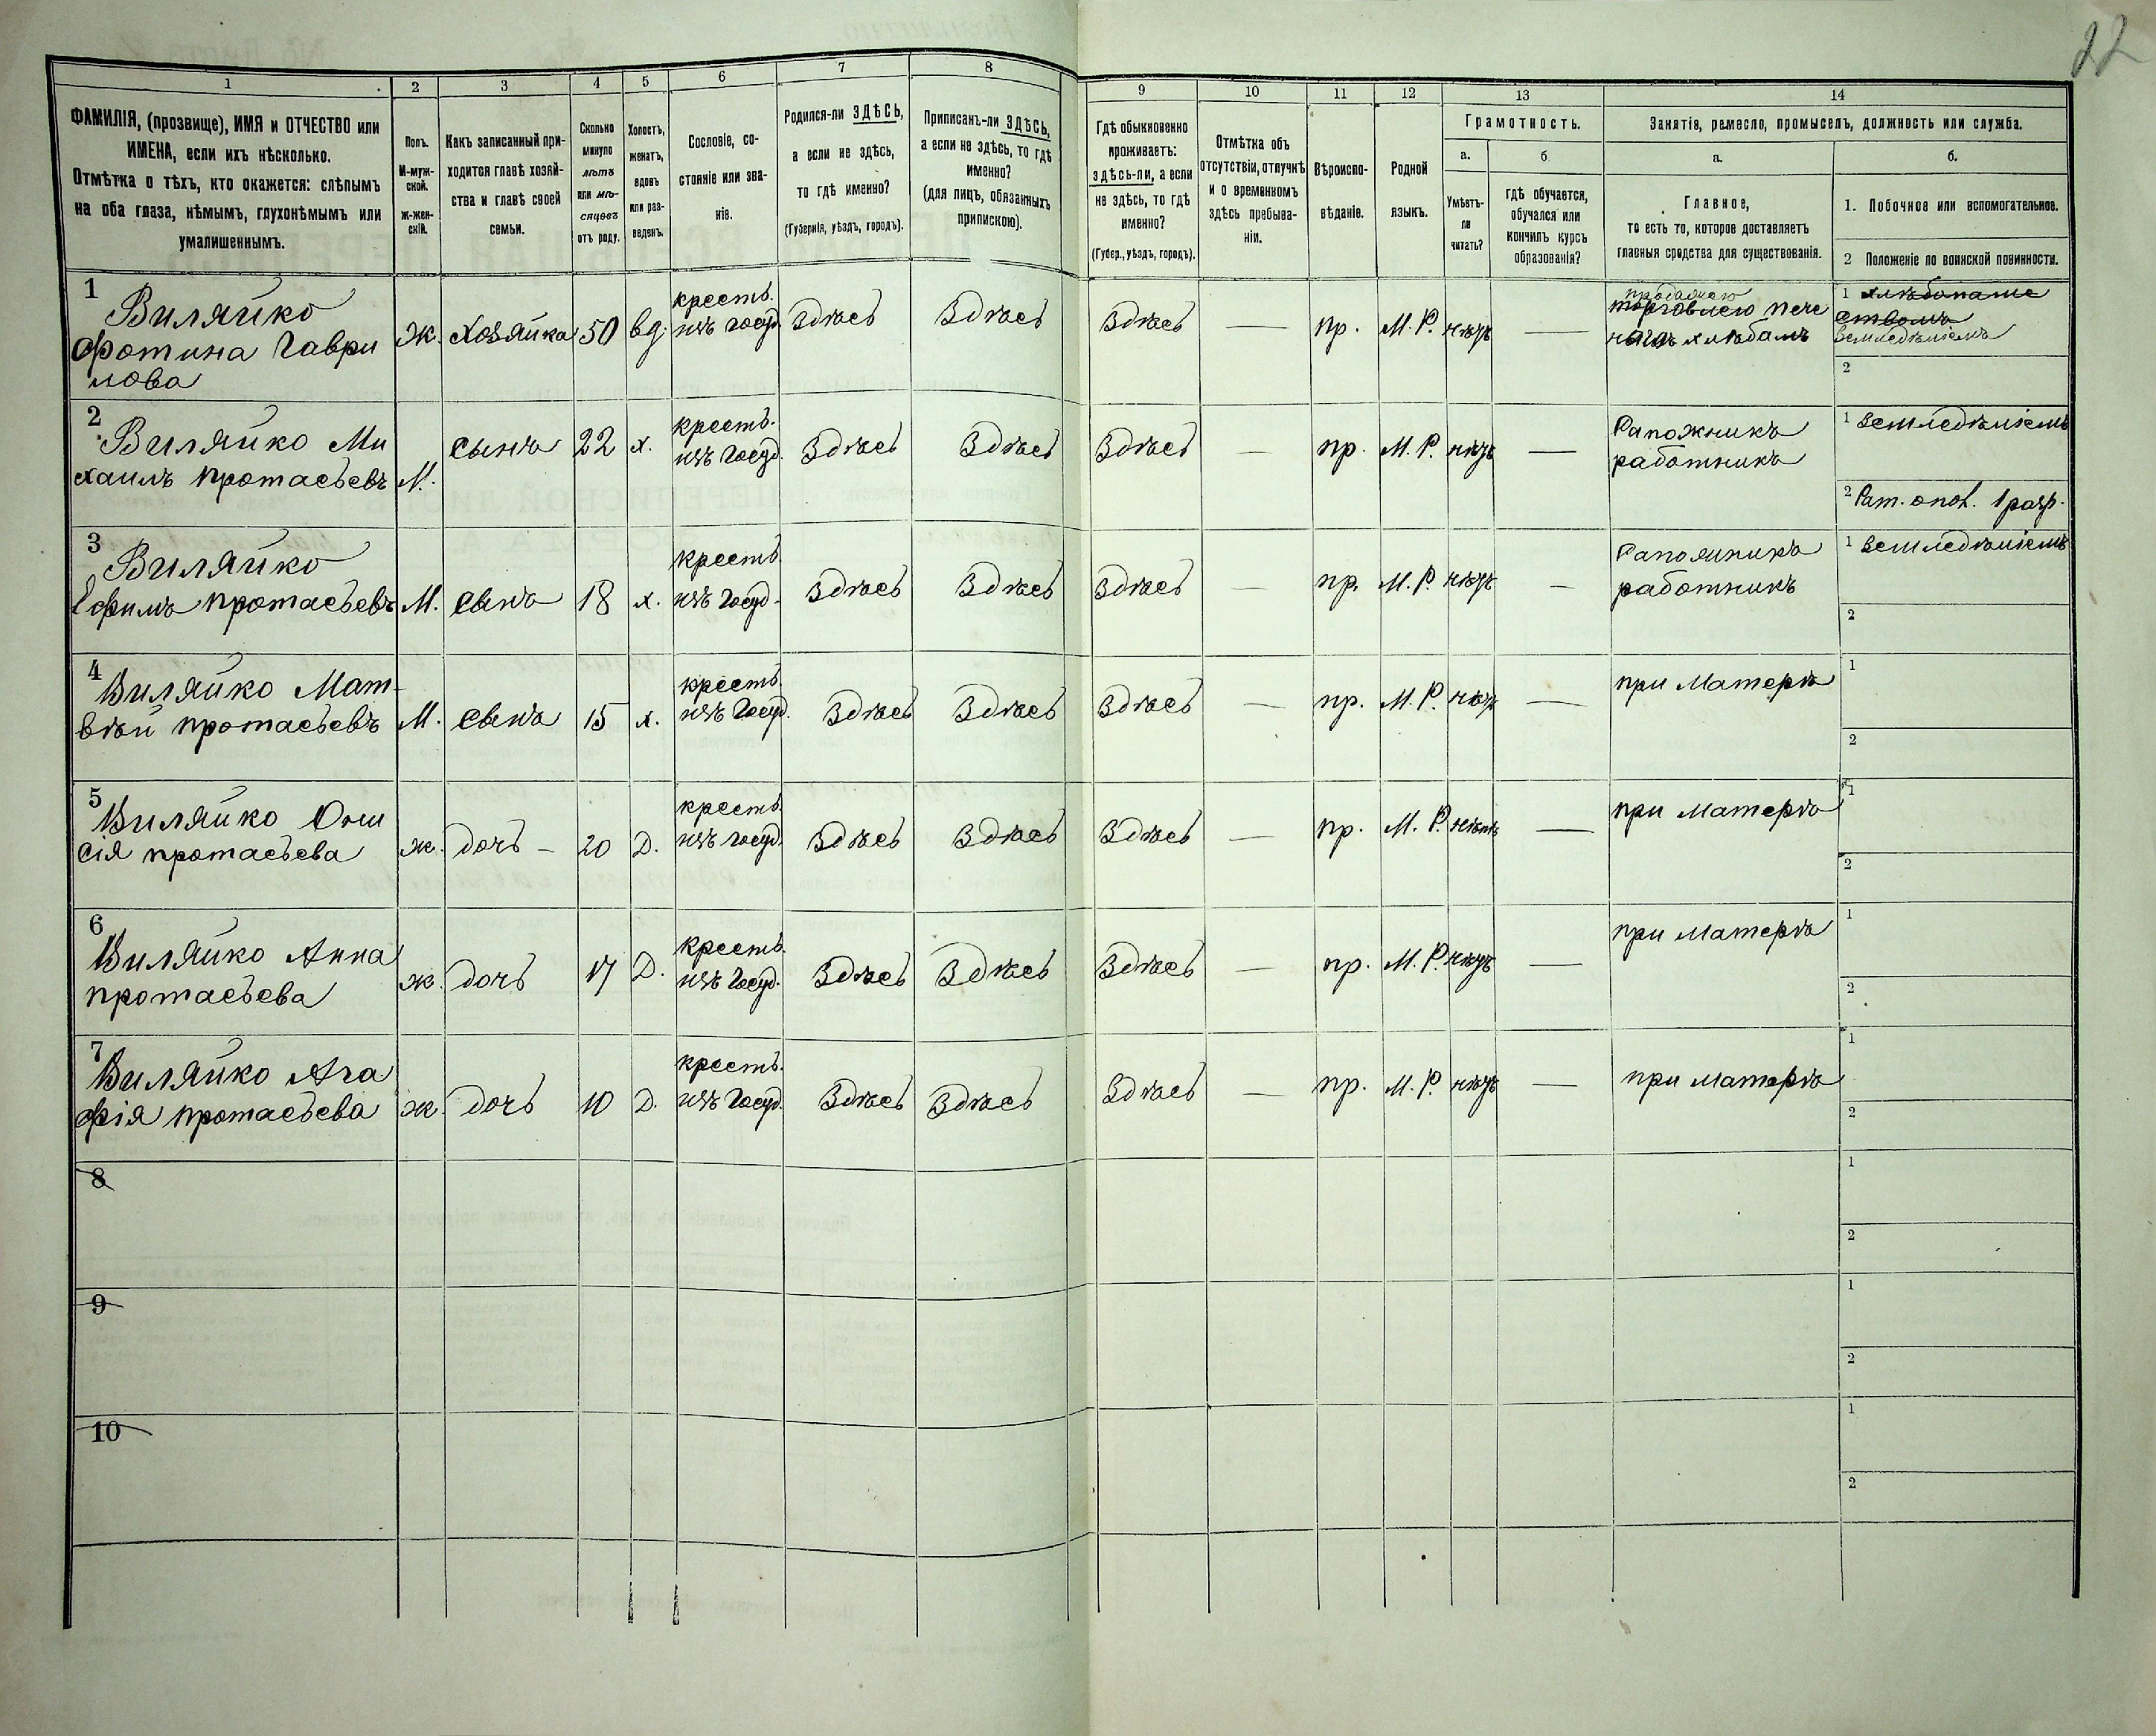 22
1 2 3 4 5 6 7 8 9 10 11 12 13 14
ФАМИЛІЯ, (прозвище), ИМЯ и ОТЧЕСТВО или
ИМЕНА, если ихъ нѣсколько.
Отмѣтка о тѣхъ, кто окажется: слѣпымъ
на оба глаза, нѣмымъ, глухонѣмымъ или
умалишеннымъ.
Полъ.
М-муж-
ской.
ж-жен-
скій.
Какъ записанный при-
ходится главѣ хозяй-
ства и главѣ своей
семьи.
Сколько
минуло
лѣтъ
или мѣ-
сяцевъ
отъ роду.
Холостъ,
женатъ,
вдовъ
или раз-
веденъ.
Сословіе, со-
стояніе или зва-
ніе.
Родился-ли ЗДѢСЬ,
а если не здѣсь,
то гдѣ именно?
(Губернія, уѣздъ, городъ).
Приписанъ-ли ЗДѢСЬ,
а если не здѣсь, то гдѣ
именно?
(для лицъ, обязанныхъ
припискою).
Гдѣ обыкновенно
проживаетъ:
здѣсь-ли, а если
не здѣсь, то гдѣ
именно?
(Губер., уѣздъ, городъ).
Отмѣтка объ
отсутствіи, отлучкѣ
и о временномъ
здѣсь пребыва-
ніи.
Вѣроиспо-
вѣданіе.
Родной
языкъ.
Грамотность.
а.
Умѣетъ-
ли
читать?
б
гдѣ обучается,
обучался или
кончилъ курсъ
образованія?
Занятія, ремесло, промыселъ, должность или служба.
а.
Главное,
то есть то, которое доставляетъ
главныя средства для существованія.
б.
1. Побочное или вспомогательное.
2 Положеніе по воинской повинности.
1
Виляйко
Фотина Гаври
лова
Ж. Хозяйка 50 вд.
кресть.
изъ госуд.
Здѣсь Здѣсь Здѣсь — пр. М. Р. нѣтъ —
продажею
торговлею пече
хлѣбомъ
1 хлѣбопаше
ствомъ
земледѣліемъ
2
2
Виляйко Ми
хаилъ Протасьевъ
М. сынъ 22 х.
кресть.
изъ Госуд.
Здѣсь Здѣсь Здѣсь — пр. М. Р. нѣтъ —
Сапожникъ
работникъ
1 земледѣліемъ
2 Рат. опол. 1 разр.
3
Виляйко
Ефимъ Протасьевъ
М. сынъ 18 х.
кресть
изъ Госуд.
Здѣсь Здѣсь Здѣсь — пр. М. Р. нѣтъ —
Сапожникъ
работникъ
1 земледѣліемъ
2
4
Виляйко Мат-
вѣй Протасьевъ
М. сынъ 15 х.
кресть.
изъ Госуд.
Здѣсь Здѣсь Здѣсь — пр. М. Р. нѣтъ —
при Матерѣ
1
2
5
Виляйко
сія Протасьева
ж. дочь — 20 Д.
кресть.
изъ госуд.
Здѣсь Здѣсь Здѣсь — пр. М. Р. нѣтъ —
при Матерѣ
1
2
6
Виляйко Анна
Протасьева
ж. дочь 17 Д.
кресть.
изъ Госуд.
Здѣсь Здѣсь Здѣсь — пр. М. Р. нѣтъ —
при Матерѣ
1
2
7
Виляйко Ага
фія Протасьева
ж. дочь 10 Д.
кресть.
изъ Госуд.
Здѣсь Здѣсь Здѣсь — пр. М. Р. нѣтъ —
при Матерѣ
1
2
8
1
2
9
1
2
10
1
2